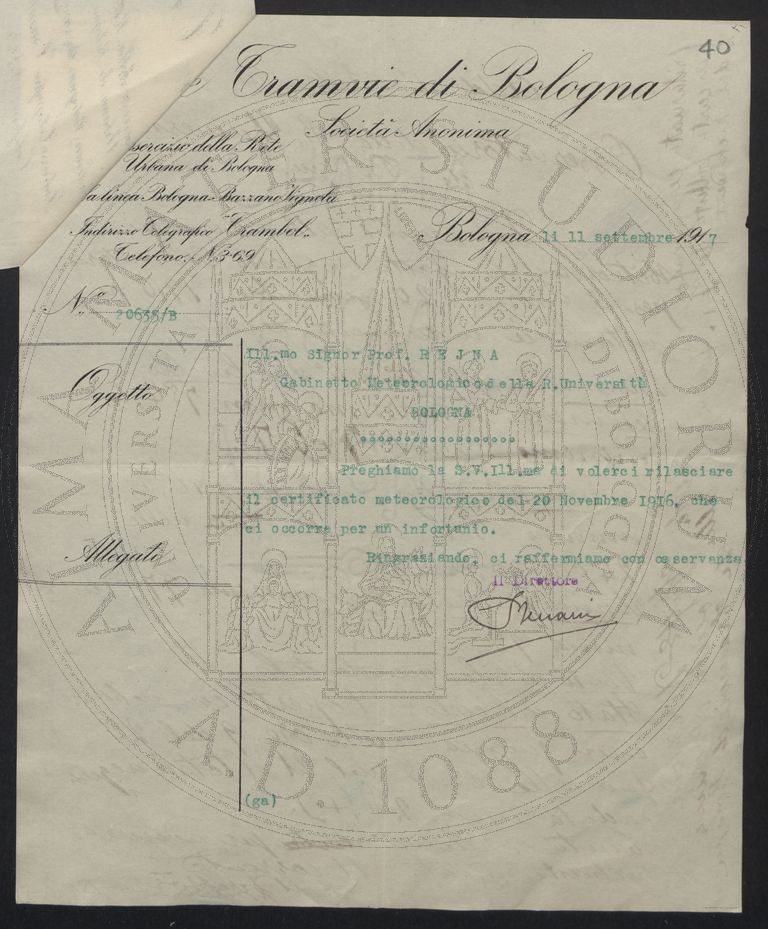 40
Tramvie di Bologna
Società Anonima
sercizio della Rete
Urbana di Bologna
la linea Bologna-Bazzano-Vignola
Indirizzo Telegrafico "Trambol"
Telefono, N. 3-69
Bologna li 11 settembre 1917
N.° 20635/B
Ill.mo Signor Prof. R E J N A
Gabinetto Meteorologico della R.Università
BOLOGNA
Oggetto
°°°°°°°°°°°°°°°°°°
Preghiamo la S.V.Ill.ma di volerci rilasciare
il certificato meteorologico del 20 Novembre 1916, che
ci occorre per un infortunio.
Allegati
Ringraziando, ci raffermiamo con osservanza
Il Direttore
(ga)
ALMA MATER STUDIORUM
UNIVERSITÀ DI BOLOGNA
A.D. 1088